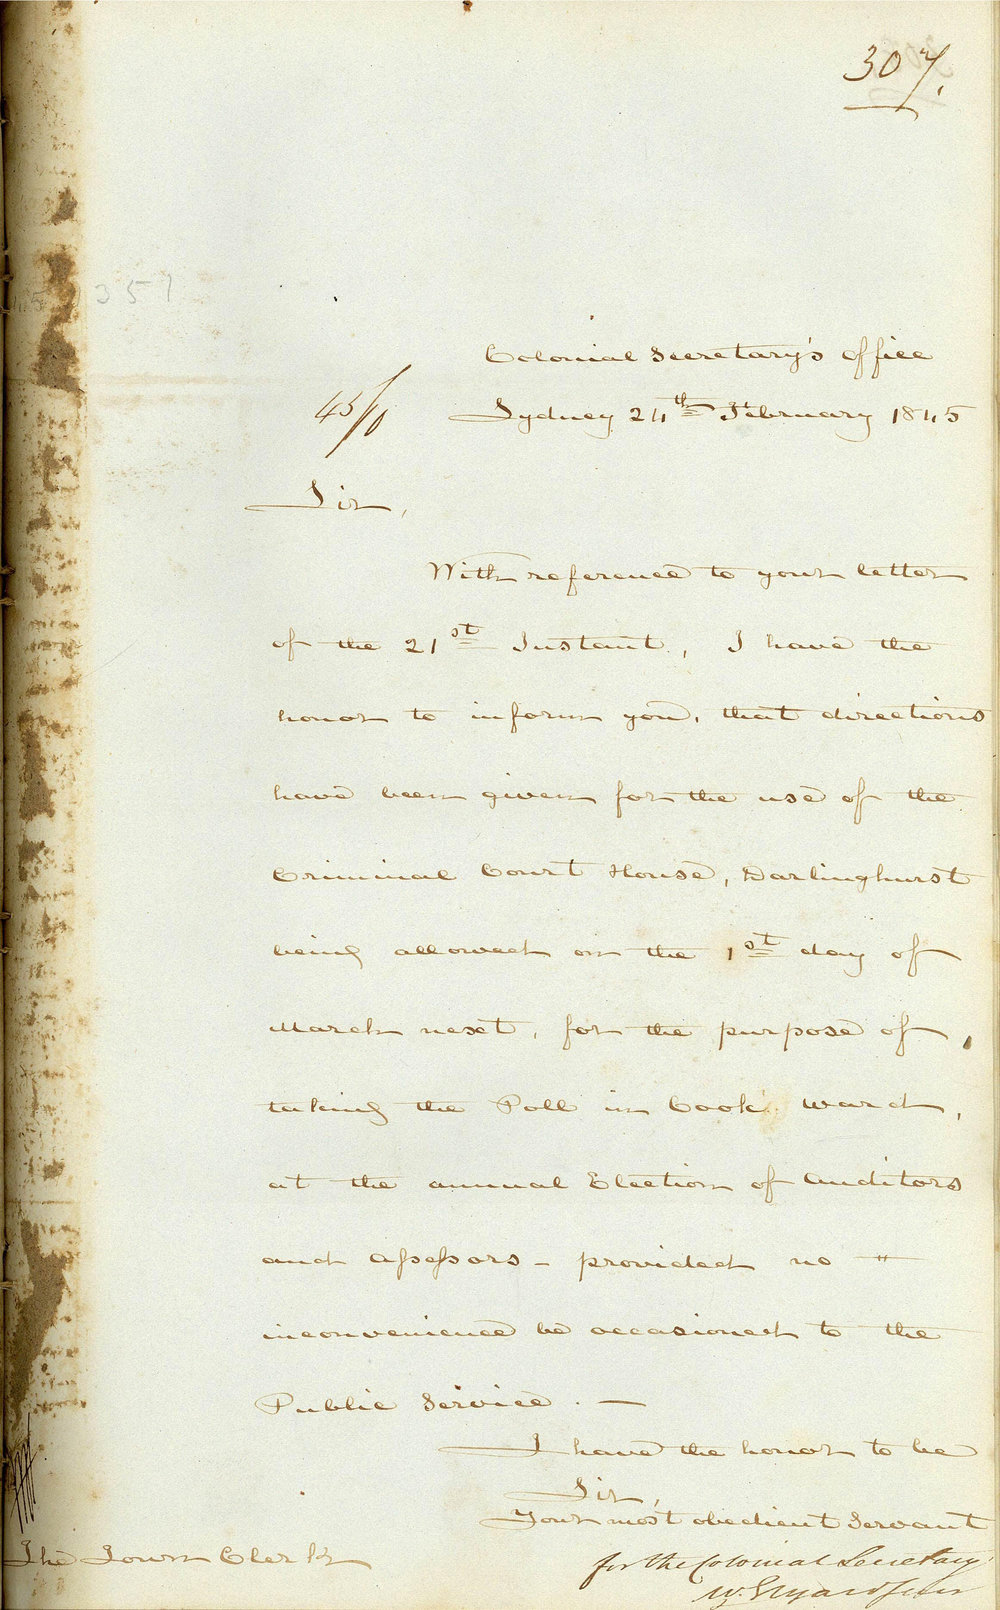 307.
351
Colonial Secretary's Office
45/10
Sydney 24th February 1845
Sir,
With reference to your letter
of the 21st Instant, I have the
honor to inform you, that directions
have been given for the use of the
Criminal Court House, Darlinghurst
being allowed on the 1st day of
March next, for the purpose of,
taking the Poll in Cook ward,
at the annual Election of Auditors
and Assessors - provided no "
inconvenience be occasioned to the
Public Service. —
I have the honor to be
Sir,
Your most obedient Servant
The Town Clerk
for the Colonial Secretary
W.